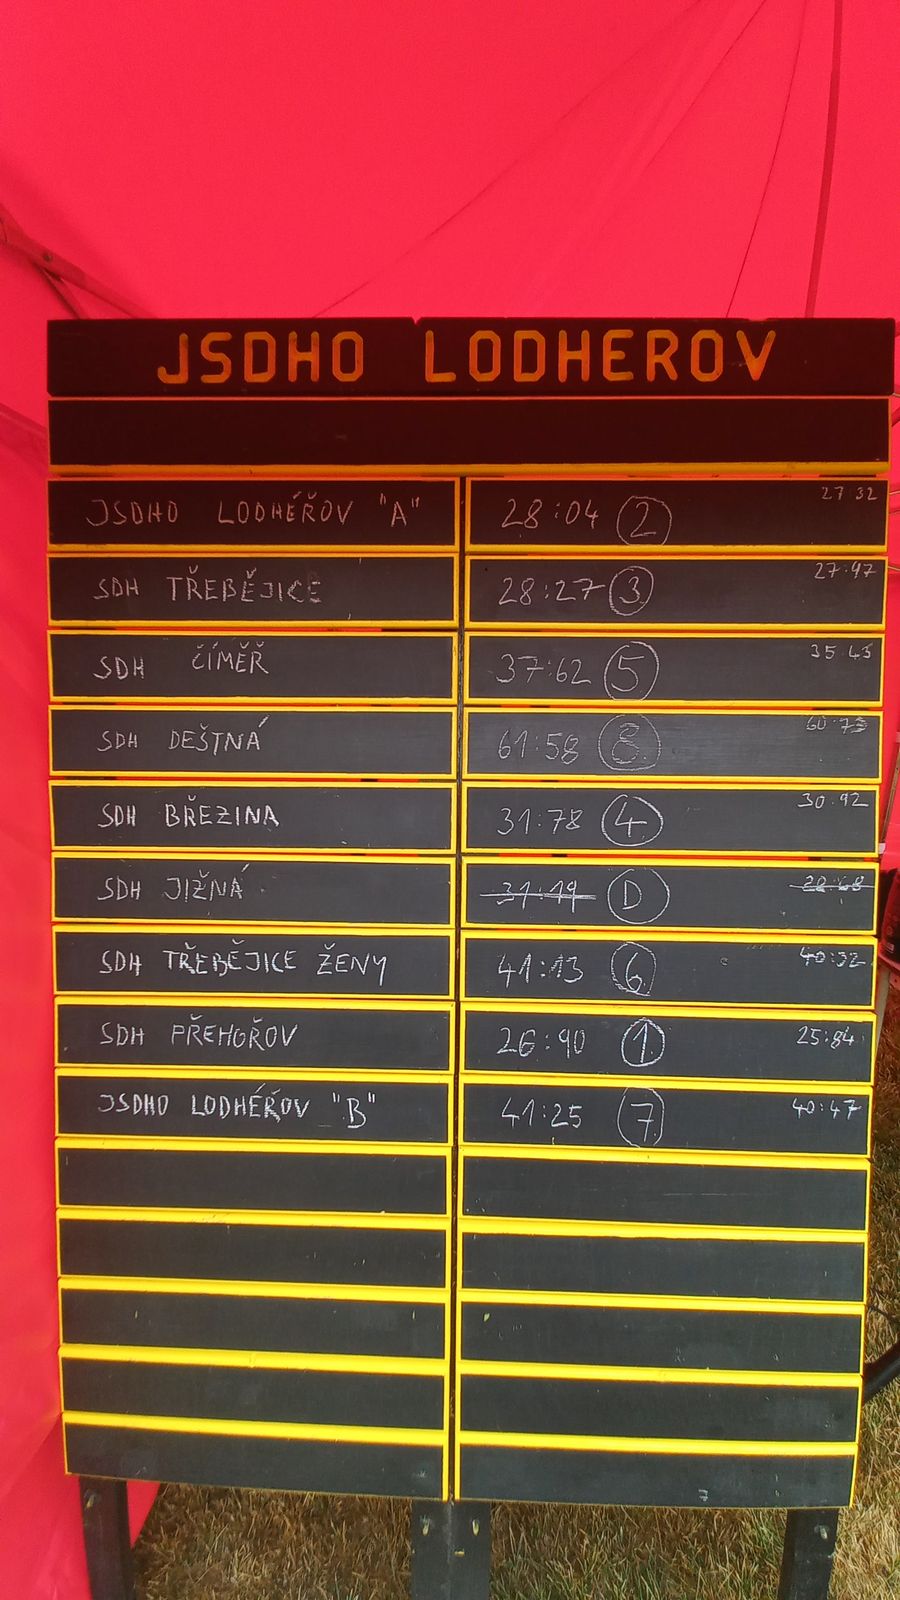 JSDHO LODHEROV
JSDHO LODHÉŘOV "A" 28:04 2 27:32
SDH TŘEBĚJICE 28:27 3 27:97
SDH ČÍMĚŘ 37:62 5 35:43
SDH DEŠTNÁ 61:58 8
SDH BŘEZINA 31:78 4 30:92
SDH JIŽNÁ 31:19 D
SDH TŘEBĚJICE ŽENY 41:13 6 40:32
SDH PŘEHOŘOV 26:90 1 25:84
JSDHO LODHÉŘOV "B" 41:25 7 40:47